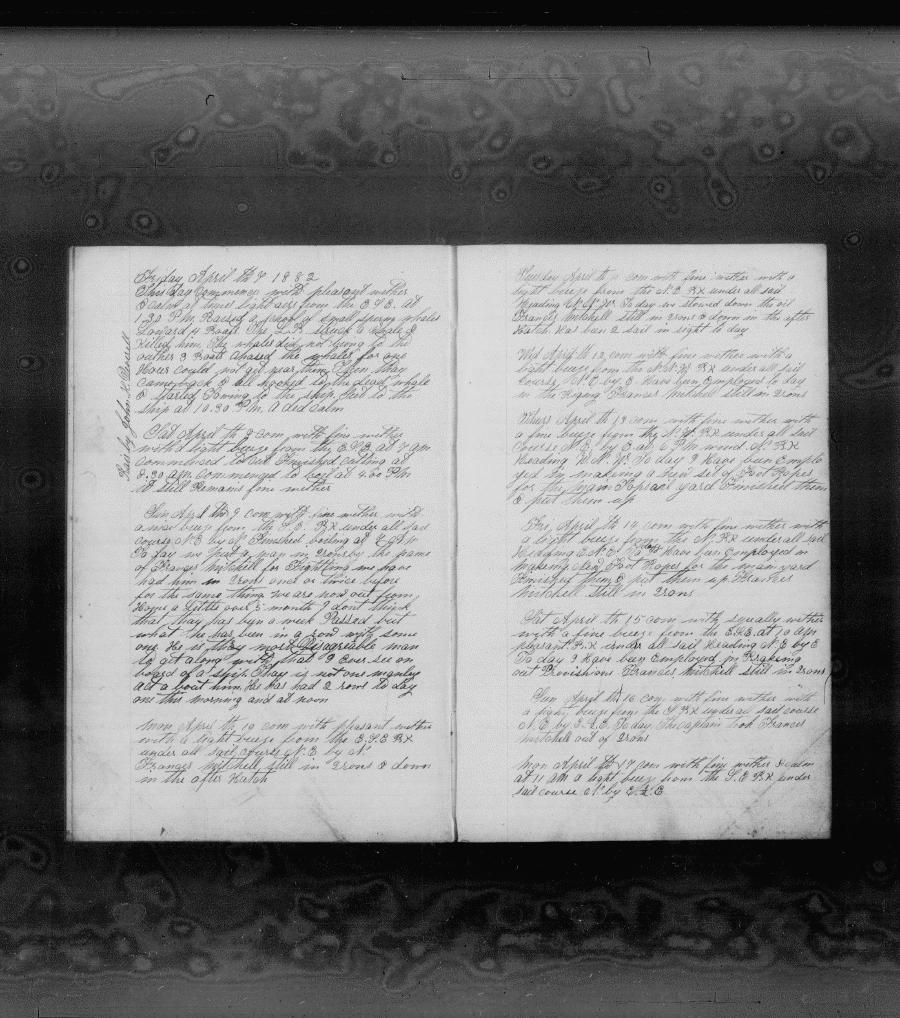 Friday April th 7 1882
This day Commences with pleasant wither
& calm at times light airs from the E.S.E. at
1.30 P.M. Raised a school of small sperm whales
Loward 4 Boats The L.B. struck a whale &
killed him The whales did not bring to the
outher 3 Boats Chased the whales for one
Hour could not get near them Then thay
came back & all hooked to the dead whale
& started towing to the ship got to the
ship at 10.30 P.M. A ded calm
Sat April th 8 com with fine wither
with a light breeze from the E.S.E. at 7 am
commenced to cut Finished cutting at
8.30 am Commenced to boil at 4.00 P.M.
It still Remains fine wither
Sun April th 9 com with fine wither with
a nice breeze from the S.E. BX under all sail
course N.E by N. Finished boiling at
To day we put a man in Irons by the name
of Frances Mitchell for Frighting we have
had him in Irons once or twice before
for the same thing we are now out from
Home a little over 5 month I dont think
that thay has ben a week Passed but
what he has ben in a row with some
one He is thay most Disagreable man
to get along with that I Ever see on
board of a ship Thay is not one manley
act a bout him He has had 2 rows to day
one this morning and at noon
Mon April th 10 com with pleasant wither
with a light breeze from the E.S.E BX
under all sail course N.E by N.
Frances Mitchell still in Irons & down
in the after Hatch
Tuesday April th 11 com with fine wither with a
light breeze from the N.E BX under all sail
Heading N.N.W. To day we stowed down the oil
Frances Mitchell still in Irons & down in the after
Hatch Has ben 2 sail in sight to day
Wed April th 12 com with fine wither with a
light breeze from the N.N.W BX under all sail
course N.E by E Have ben Employed to day
in the Riging Frances Mitchell still in Irons
Thurs April th 13 com with fine wither with
a fine breeze from the N.W. BX under all sail
course N.E by E at 6 P.M wind N. BX
Heading W.N.W. To day I Have ben Emplo
yed by making a new set of Foot Ropes
for the main Topsail yard Finished them
& put them up
Fri April th 14 com with fine wither with
a light breeze from the N. BX under all sail
Heading E.N.E. To day Have ben Employed in
making new Foot Ropes for the main yard
Finished them & put them up Frances
Mitchell still in Irons
Sat April th 15 com with squally wither
with a fine breeze from the E.S.E. at 10 am
pleasant BX under all sail Heading N.E by E
To day I Have ben Employed in Braking
out Provisions Frances Mitchell still in Irons
Sun April th 16 com with fine wither with
a light breeze from the S. BX under all sail course
N.E by E To day The Captain took Frances
Mitchell out of Irons
Mon April th 17 com with fine wither & calm
at 11 am a light breeze from the S.E BX under
sail course N. by E